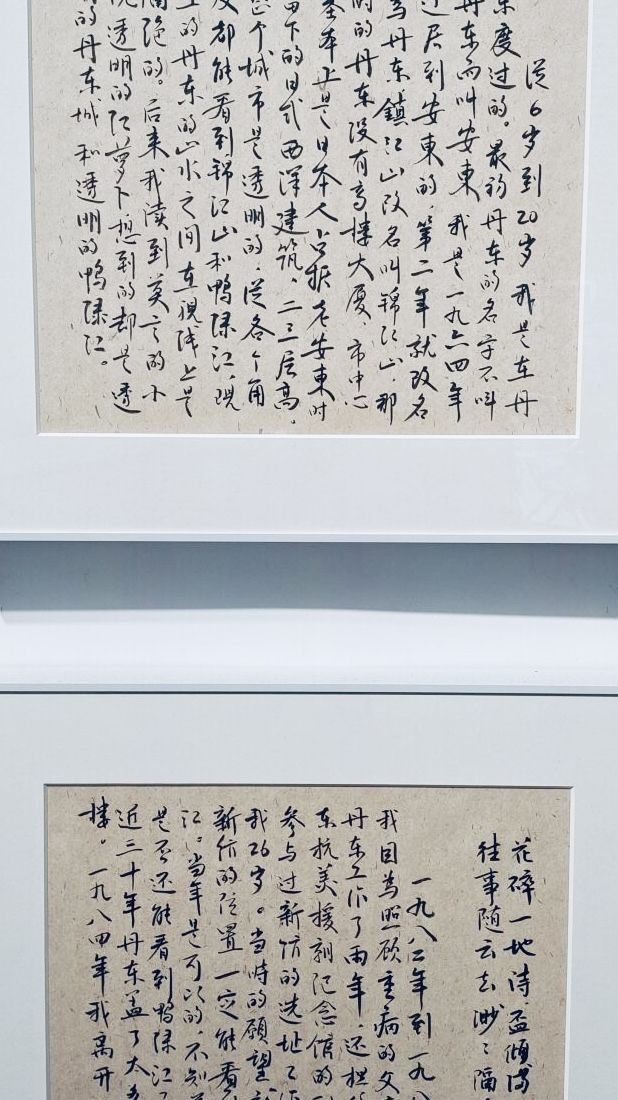 从6岁到20岁我是在丹
东度过的。最初丹东的名字不叫
丹东而叫安東。我是一九六四年
过居到安東的，第二年就改名
为丹东，鎮江山改名叫锦江山，那
时的丹东没有高楼大厦，市中心
基本上是日本人占据老安東时
留下的日式西洋建筑，二三层高。
个城市是透明的，从各个角
度都能看到锦江山和鸭绿江，现
的丹东的山水之间在视线上是
隔绝的。后来我读到莫言的小
说透明的红萝卜想到的却是透
明的丹东城和透明的鸭绿江。
花碎一地诗，盃倾满
往事随云去，渺渺隔
一九八二年到一九八
我因为照顾重病的父
丹东工作了两年，还担
东抗美援朝纪念馆的
参与过新馆的选址
我26岁。当时的愿望
新馆的位置一定能看
江。当年是可以的，不知
是否还能看到鸭绿江
近三十年丹东盖了太多
楼。一九八四年我离开